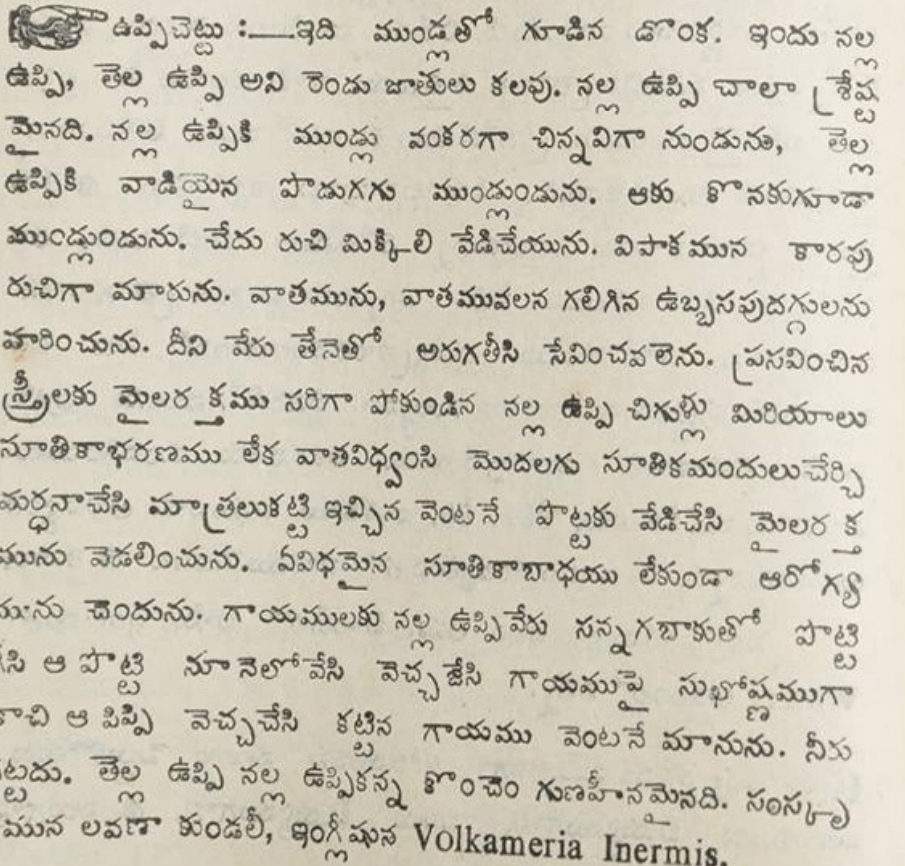 ఉప్పిచెట్టు :—ఇది ముండ్లతో గూడిన డొంక. ఇందు నల్ల
ఉప్పి, తెల్ల ఉప్పి అని రెండు జాతులు కలవు. నల్ల ఉప్పి చాలా శ్రేష్ట
మైనది. నల్ల ఉప్పికి ముండ్లు వంకరగా చిన్నవిగా నుండును, తెల్ల
ఉప్పికి వాడియైన పొడుగగు ముండ్లుండును. ఆకు కొనకుగూడా
ముండ్లుండును. చేదు రుచి మిక్కిలి వేడిచేయును. విపాకమున కారపు
రుచిగా మారును. వాతమును, వాతమువలన గలిగిన ఉబ్బసపుదగ్గులను
హరించును. దీని వేరు తేనెతో అరుగతీసి సేవించవలెను. ప్రసవించిన
స్త్రీలకు మైలరక్తము సరిగా పోకుండిన నల్ల ఉప్పి చిగుళ్లు మిరియాలు
సూతికాభరణము లేక వాతవిధ్వంసి మొదలగు సూతికమందులుచేర్చి
మర్ధనాచేసి మాత్రలుకట్టి ఇచ్చిన వెంటనే పొట్టకు వేడిచేసి మైలరక్త
మును వెడలించును. ఏవిధమైన సూతికాబాధయు లేకుండా ఆరోగ్య
మును చెందును. గాయములకు నల్ల ఉప్పివేరు సన్నగబాకుతో పొట్టి
సి ఆ పొట్టి నూనెలోవేసి వెచ్చజేసి గాయముపై సుఖోష్ణముగా
కాచి ఆ పిప్పి వెచ్చచేసి కట్టిన గాయము వెంటనే మానును. నీరు
ట్టదు. తెల్ల ఉప్పి నల్ల ఉప్పికన్న కొంచెం గుణహీనమైనది. సంస్కృ
మున లవణా కుండలీ, ఇంగ్లీషున Volkameria Inermis.